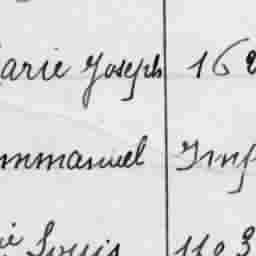 arie Joseph 16
mmanuel Imp
é Louis 1103